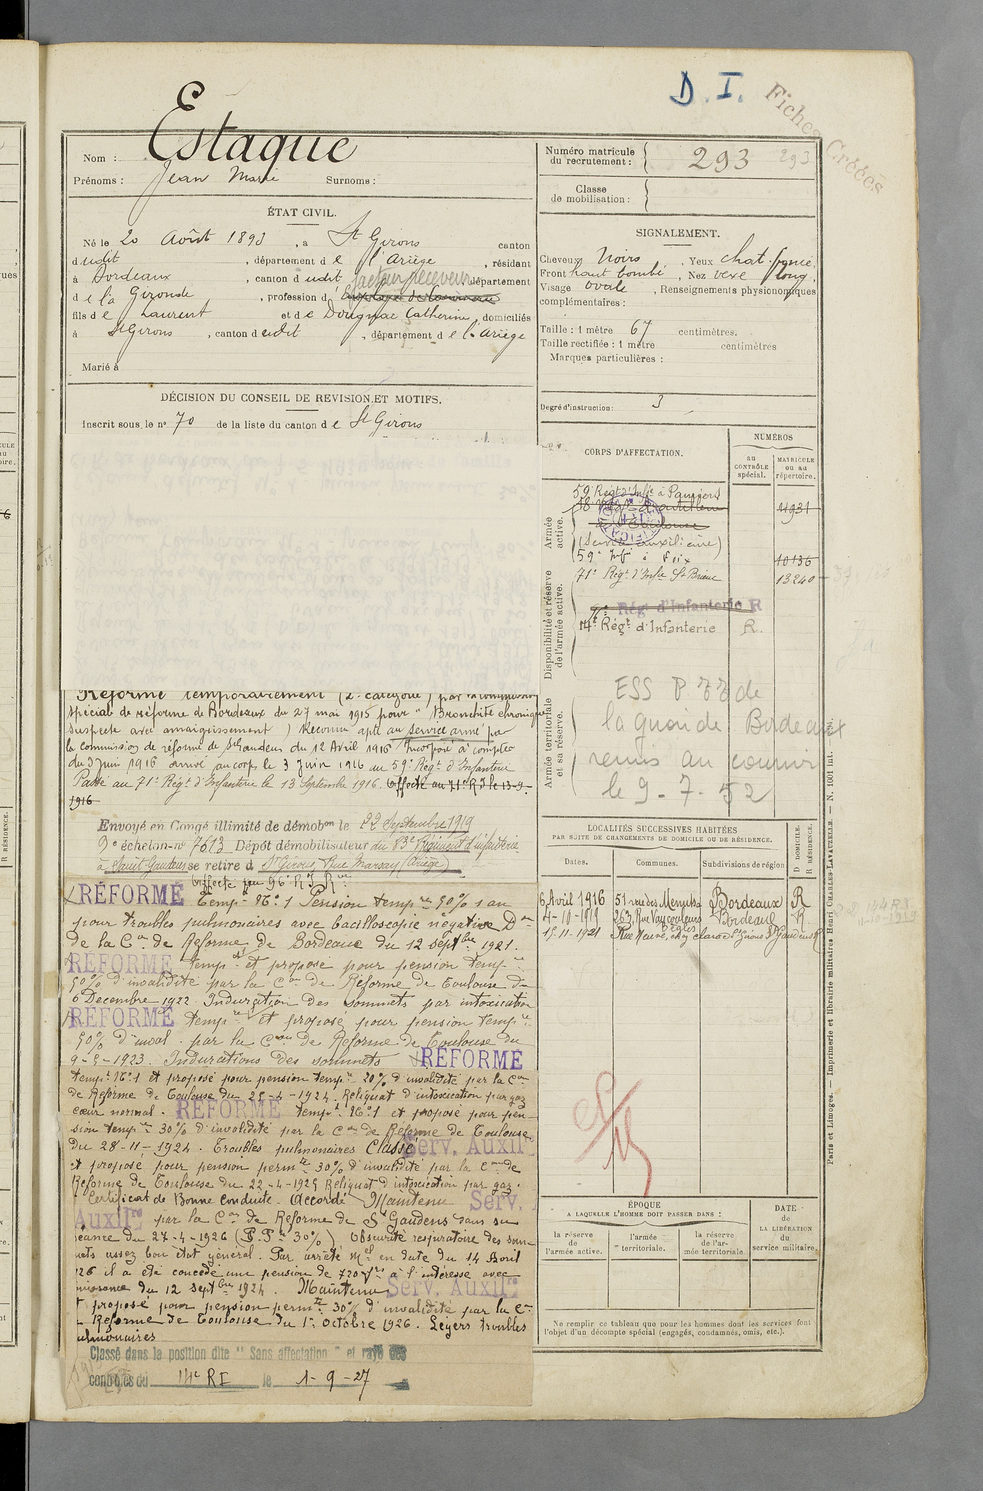 D. I.
Fiches Créées
Nom : Estaque
Prénoms : Jean Marie Surnoms :
Numéro matricule du recrutement : 293 293
Classe de mobilisation :
ÉTAT CIVIL.
Né le 20 Août 1893, à St Girons canton
dudit, département de l'Ariège, résidant
à Bordeaux, canton dudit, département
de la Gironde, profession d facteur receveur
fils de Laurent et de Dougnac Catherine, domiciliés
à St Girons, canton dudit, département de l'Ariège
Marié à
SIGNALEMENT.
Cheveux Noirs, Yeux chat. foncé,
Front haut bombé, Nez vexe long,
Visage ovale, Renseignements physionomiques
complémentaires :
Taille : 1 mètre 67 centimètres.
Taille rectifiée : 1 mètre centimètres
Marques particulières :
Degré d'instruction : 3
DÉCISION DU CONSEIL DE REVISION ET MOTIFS.
Inscrit sous le n° 70 de la liste du canton de St Girons
Réforme temporairement (2e catégorie) par la commission
spéciale de réforme de Bordeaux du 27 mai 1915 pour "Bronchite chronique
suspecte avec amaigrissement) Reconnu apte au service armé par
la commission de réforme de St Gaudens du 12 Avril 1916 Incorporé à compter
du 3 juin 1916 arrivé au corps le 3 juin 1916 au 59e Régt d'Infanterie
Passé au 71e Régt d'Infanterie le 13 Septembre 1916. Affecté au 71e RI le 13-9-
1916
Envoyé en Congé illimité de démobon le 22 Septembre 1919
9e échelon n° 7613 Dépôt démobilisateur du 83e Régiment d'infanterie
à Saint Gaudens se retire à St Girons, Rue (Ariège)
RÉFORMÉ Tempre N° 1 Pension tempre 50% 1 an
pour troubles pulmonaires avec bacilloscopie négative Don
de la Con de Réforme de Bordeaux du 12 septbre 1921.
RÉFORMÉ tempre et proposé pour pension tempre
50% d'invalidité par la Con de Réforme de Toulouse du
6 Décembre 1922. Induration des sommets par intoxication
RÉFORMÉ tempre et proposé pour pension tempre
50% d'inval. par la Con de Réforme de Toulouse du
9-5-1923. Indurations des sommets RÉFORMÉ
tempre N° 1 et proposé pour pension tempre 20% d'invalidité par la Con
de Réforme de Toulouse du 28-4-1924. Reliquat d'intoxication par gaz
cœur normal. RÉFORMÉ tempre N° 1 et proposé pour pen-
sion tempre 30% d'invalidité par la Con de Réforme de Toulouse
du 28-11-1924. Troubles pulmonaires Classé Serv. Auxilre
et proposé pour pension permte 30% d'invalidité par la Con de
Réforme de Toulouse du 22-4-1925 Reliquat d'intoxication par gaz.
Certificat de Bonne Conduite. Accordé Maintenu Serv.
Auxilre par la Con de Réforme de St Gaudens dans sa
séance du 27-4-1926 (P.P. 30%) Obscurité respiratoire des som-
mets assez bon état général. Par arrêté Mel en date du 14 Avril
926 il a été concédé une pension de 720 frs à l'intéressé avec
jouissance du 12 septbre 1924. Maintenu Serv. Auxilre
et proposé pour pension permte 30% d'invalidité par la Con
de Réforme de Toulouse du 1er octobre 1926. Légers troubles
pulmonaires
Classé dans la position dite "Sans affectation" et rayé des
contrôles du 14e RI le 1-9-27
CORPS D'AFFECTATION.
NUMÉROS
au CONTRÔLE spécial.
MATRICULE ou au répertoire.
Armée active.
59e Régt d'Infie à Pamiers
(Service auxiliaire)
59e Infie à Foix 10136
71e Régt d'Infie St Brieuc 13240
Disponibilité et réserve de l'armée active.
Rég. d'Infanterie R
14e Régt d'Infanterie R.
Armée territoriale et sa réserve.
ESS P 77 de
la quai de Bordeaux
remis au courrier
le 9-7-52
LOCALITÉS SUCCESSIVES HABITÉES
PAR SUITE DE CHANGEMENTS DE DOMICILE OU DE RÉSIDENCE.
Dates. Communes. Subdivisions de région D DOMICILE. R RÉSIDENCE.
6 Avril 1916 51 rue des Menuts Bordeaux R
4-10-1919 263, Rue Vaucouleurs Bordeaux R
15-11-1921 Rue Neuve, St Girons St Gaudens R
ÉPOQUE
A LAQUELLE L'HOMME DOIT PASSER DANS :
la réserve de l'armée active.
l'armée territoriale.
la réserve de l'armée territoriale.
DATE de LA LIBÉRATION du service militaire.
Ne remplir ce tableau que pour les hommes dont les services font
l'objet d'un décompte spécial (engagés, condamnés, omis, etc.).
Paris et Limoges. — Imprimerie et librairie militaires Henri CHARLES-LAVAUZELLE. — N. 1001 int.